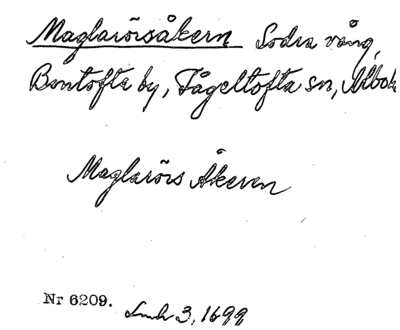 Maglarörsåkern Södra vång,
Bontofta by, Fågeltofta sn, Albo
Maglarörs Åkeren
Nr 6209. Lmh 3, 1699